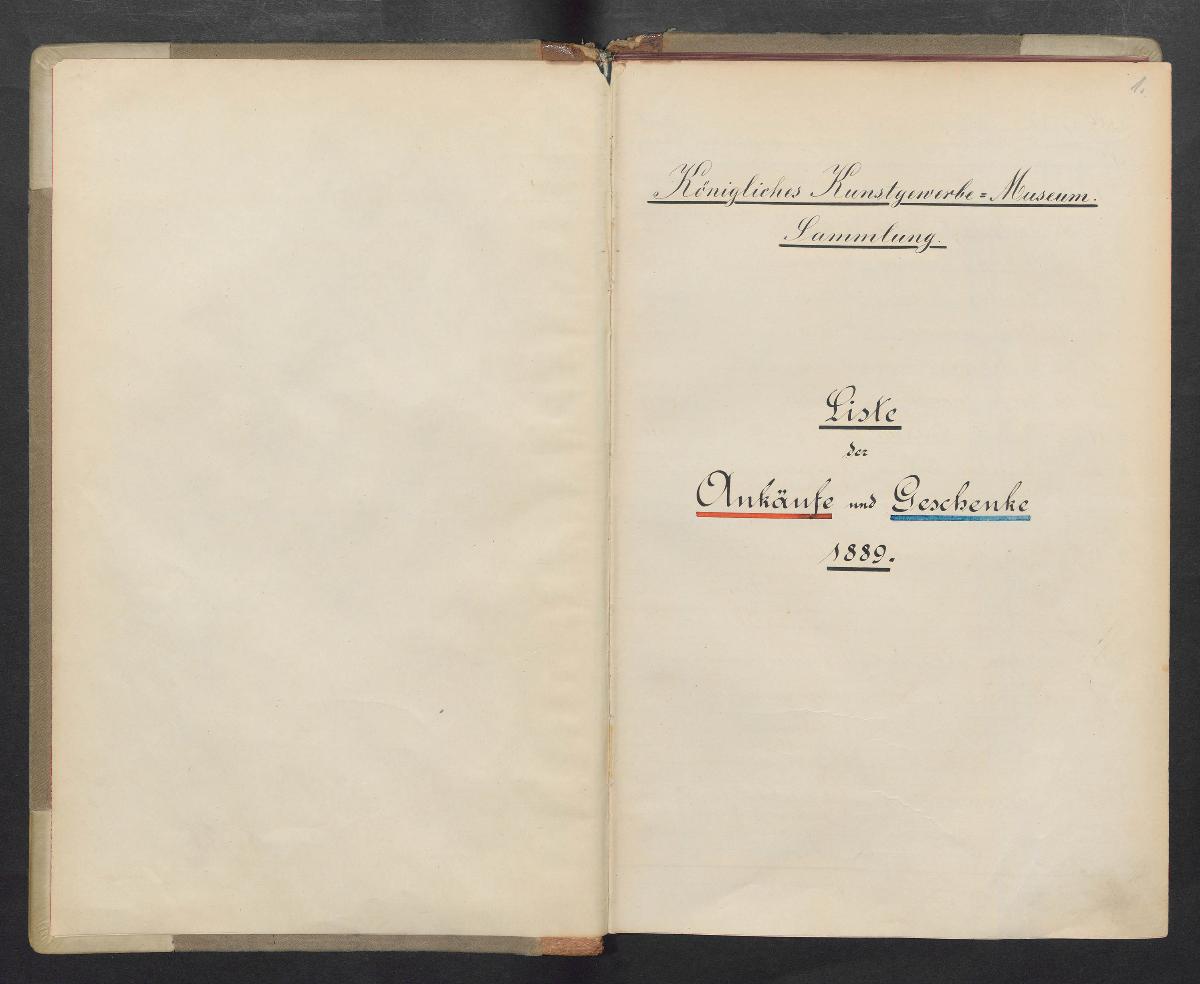 1.
Königliches Kunstgewerbe=Museum.
Sammlung.
Liste
der
Ankäufe und Geschenke
1889.